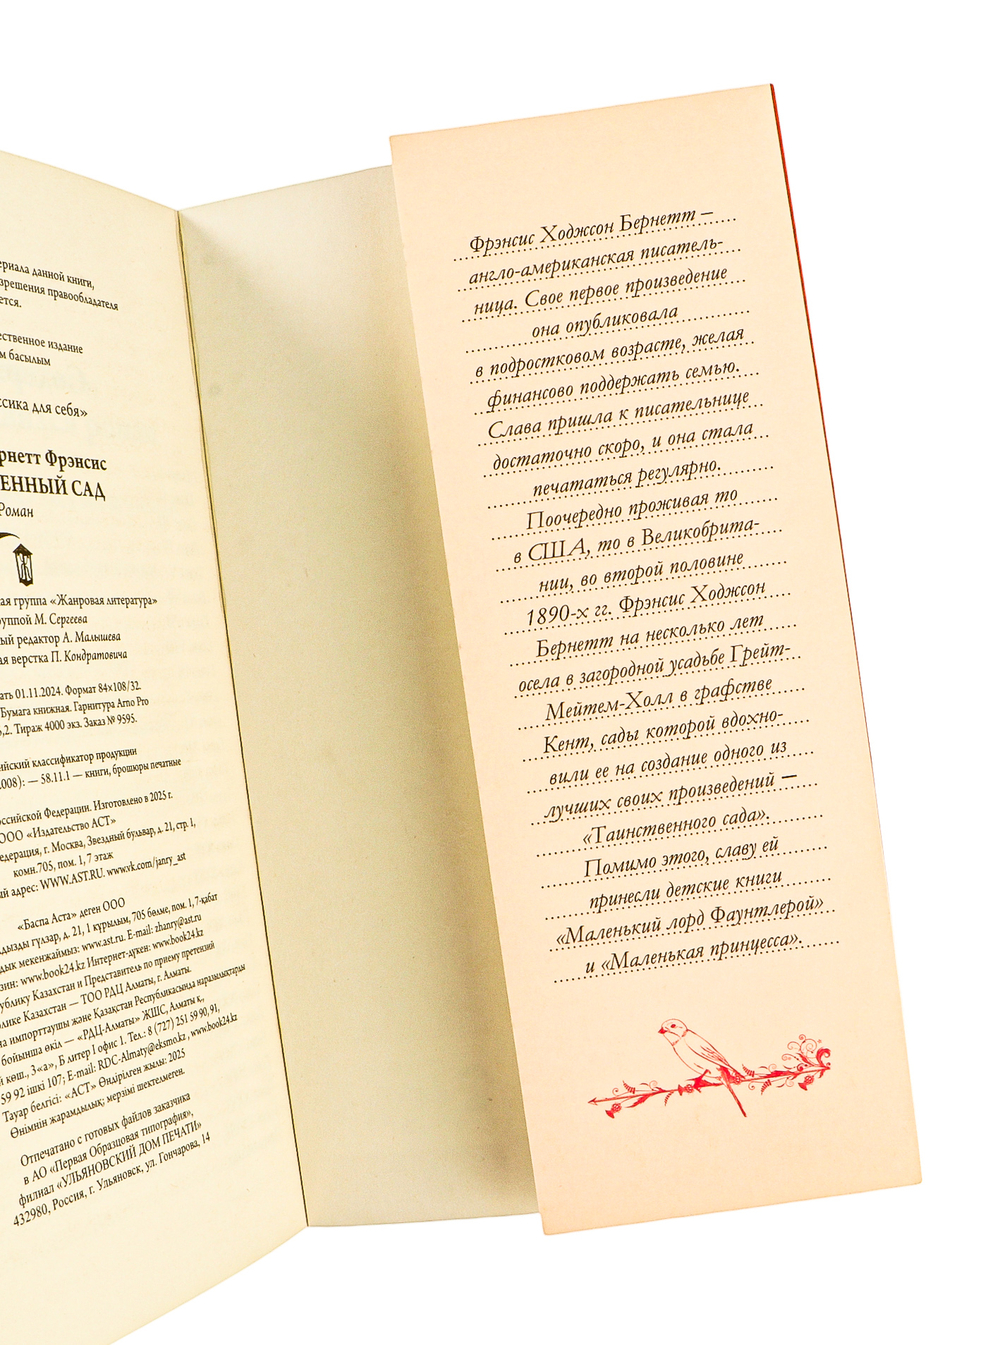 данной книги,
правообладателя
издание
басылым
для себя»
Фрэнсис
САД
Роман
группа «Жанровая литература»
М. Сергеева
редактор А. Малышева
верстка П. Кондратовича
01.11.2024. Формат 84×108/32.
Бумага книжная. Гарнитура Arno Pro
Тираж 4000 экз. Заказ № 9595.
классификатор продукции
— 58.11.1 — книги, брошюры печатные
Федерации. Изготовлено в 2025 г.
ООО «Издательство АСТ»
г. Москва, Звездный бульвар, д. 21, стр. 1,
комн. 705, пом. I, 7 этаж
адрес: WWW.AST.RU. www.vk.com/janry_ast
«Баспа Аста» деген ООО
гүлзар, д. 21, 1 құрылым, 705 бөлме, пом. I, 7-қабат
мекенжаймыз: www.ast.ru. E-mail: zhanry@ast.ru
www.book24.kz Интернет-дүкен: www.book24.kz
Казахстан и Представитель по приему претензий
Казахстан — ТОО РДЦ Алматы, г. Алматы.
импорттаушы және Қазақстан Республикасында наразылықтарды
бойынша өкіл — «РДЦ-Алматы» ЖШС, Алматы қ.,
көш., 3«а», Б литер I офис 1. Тел.: 8 (727) 251 59 90, 91,
59 92 ішкі 107; E-mail: RDC-Almaty@eksmo.kz , www.book24.kz
Тауар белгісі: «АСТ» Өндірілген жылы: 2025
Өнімнің жарамдылық; мерзімі шектелмеген.
Отпечатано с готовых файлов заказчика
в АО «Первая Образцовая типография»,
филиал «УЛЬЯНОВСКИЙ ДОМ ПЕЧАТИ»
432980, Россия, г. Ульяновск, ул. Гончарова, 14
Фрэнсис Ходжсон Бернетт –
англо-американская писатель-
ница. Свое первое произведение
она опубликовала
в подростковом возрасте, желая
финансово поддержать семью.
Слава пришла к писательнице
достаточно скоро, и она стала
печататься регулярно.
Поочередно проживая то
в США, то в Великобрита-
нии, во второй половине
1890-х гг. Фрэнсис Ходжсон
Бернетт на несколько лет
осела в загородной усадьбе Грейт-
Мейтем-Холл в графстве
Кент, сады которой вдохно-
вили ее на создание одного из
лучших своих произведений —
«Таинственного сада».
Помимо этого, славу ей
принесли детские книги
«Маленький лорд Фаунтлерой»
и «Маленькая принцесса».